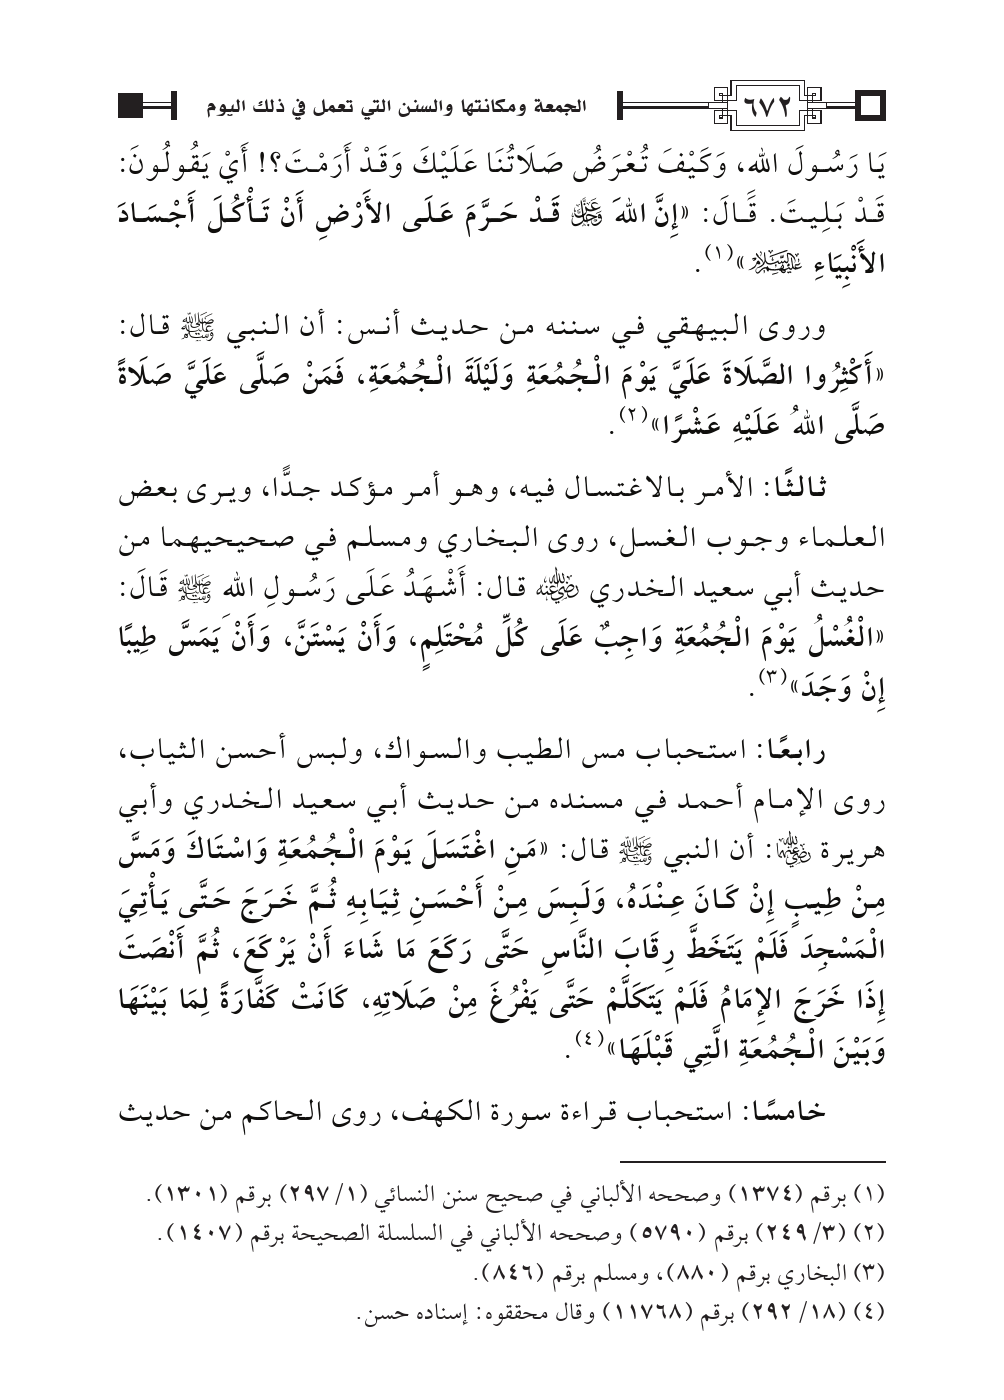 ٦٧٢
الجمعة ومكانتها والسنن التي تعمل في ذلك اليوم
يَا رَسُولَ اللهِ، وَكَيْفَ تُعْرَضُ صَلَاتُنَا عَلَيْكَ وَقَدْ أَرَمْتَ؟! أَيْ يَقُولُونَ:
قَدْ بَلِيتَ. قََالَ: «إِنَّ اللهَ عَزَّ وَجَلَّ قَدْ حَرَّمَ عَلَى الأَرْضِ أَنْ تَأْكُلَ أَجْسَادَ
الأَنْبِيَاءِ عَلَيْهِمُ السَّلَام»(١).
وروى البيهقي في سننه من حديث أنس: أن النبي ﷺ قال:
«أَكْثِرُوا الصَّلَاةَ عَلَيَّ يَوْمَ الْجُمُعَةِ وَلَيْلَةَ الْجُمُعَةِ، فَمَنْ صَلَّى عَلَيَّ صَلَاةً
صَلَّى اللهُ عَلَيْهِ عَشْرًا»(٢).
ثالثًا: الأمر بالاغتسال فيه، وهو أمر مؤكد جدًّا، ويرى بعض
العلماء وجوب الغسل، روى البخاري ومسلم في صحيحيهما من
حديث أبي سعيد الخدري رضي الله عنه قال: أَشْهَدُ عَلَى رَسُولِ اللهِ ﷺ قَالَ:
«الْغُسْلُ يَوْمَ الْجُمُعَةِ وَاجِبٌ عَلَى كُلِّ مُحْتَلِمٍ، وَأَنْ يَسْتَنَّ، وَأَنْ يَمَسَّ طِيبًا
إِنْ وَجَدَ»(٣).
رابعًا: استحباب مس الطيب والسواك، ولبس أحسن الثياب،
روى الإمام أحمد في مسنده من حديث أبي سعيد الخدري وأبي
هريرة رضي الله عنهما: أن النبي ﷺ قال: «مَنِ اغْتَسَلَ يَوْمَ الْجُمُعَةِ وَاسْتَاكَ وَمَسَّ
مِنْ طِيبٍ إِنْ كَانَ عِنْدَهُ، وَلَبِسَ مِنْ أَحْسَنِ ثِيَابِهِ ثُمَّ خَرَجَ حَتَّى يَأْتِيَ
الْمَسْجِدَ فَلَمْ يَتَخَطَّ رِقَابَ النَّاسِ حَتَّى رَكَعَ مَا شَاءَ أَنْ يَرْكَعَ، ثُمَّ أَنْصَتَ
إِذَا خَرَجَ الإِمَامُ فَلَمْ يَتَكَلَّمْ حَتَّى يَفْرُغَ مِنْ صَلَاتِهِ، كَانَتْ كَفَّارَةً لِمَا بَيْنَهَا
وَبَيْنَ الْجُمُعَةِ الَّتِي قَبْلَهَا»(٤).
خامسًا: استحباب قراءة سورة الكهف، روى الحاكم من حديث
(١) برقم (١٣٧٤) وصححه الألباني في صحيح سنن النسائي (١/ ٢٩٧) برقم (١٣٠١).
(٢) (٣/ ٢٤٩) برقم (٥٧٩٠) وصححه الألباني في السلسلة الصحيحة برقم (١٤٠٧).
(٣) البخاري برقم (٨٨٠)، ومسلم برقم (٨٤٦).
(٤) (١٨/ ٢٩٢) برقم (١١٧٦٨) وقال محققوه: إسناده حسن.